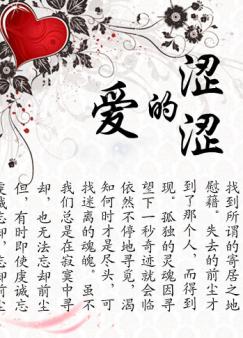 涩涩的爱
但，有时即使虔诚忘
却，也无法忘却前尘
我们总是在寂寞中寻
找迷离的魂魄。虽不
知何时才是尽头，可
依然不停地寻觅，渴
望下一秒奇迹就会临
现。孤独的灵魂因寻
到了那个人，而得到
慰藉。失去的前尘才
找到所谓的寄居之地